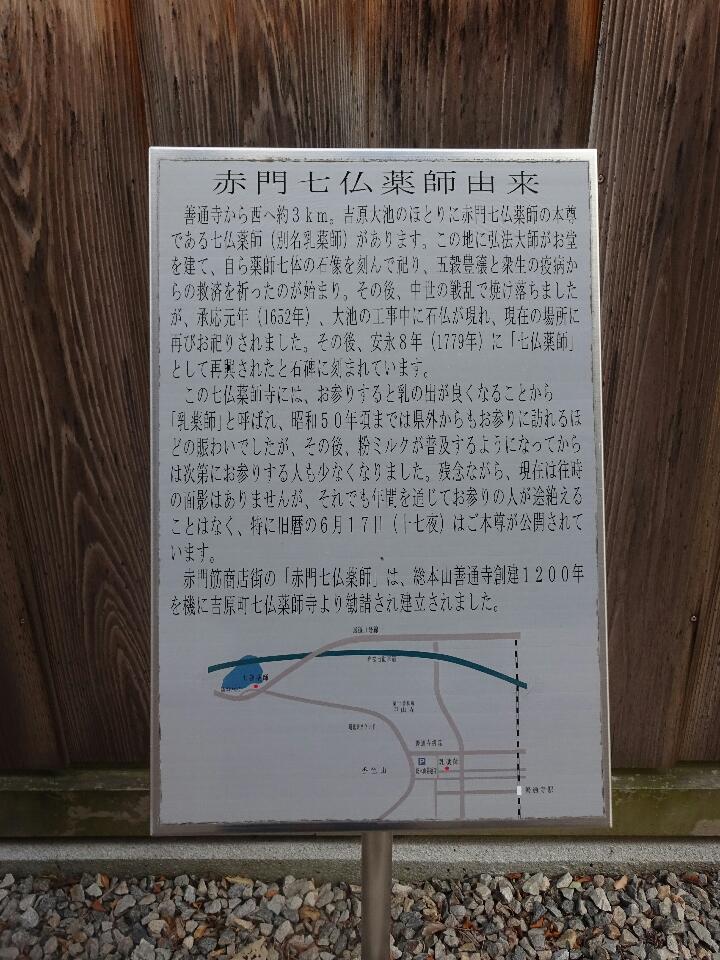 赤門七仏薬師由来
善通寺から西へ約３ｋｍ。吉原大池のほとりに赤門七仏薬師の本尊
である七仏薬師（別名乳薬師）があります。この地に弘法大師がお堂
を建て、自ら薬師七体の石像を刻んで祀り、五穀豊穣と衆生の疫病か
らの救済を祈ったのが始まり。その後、中世の戦乱で焼け落ちました
が、承応元年（1652年）、大池の工事中に石仏が現れ、現在の場所に
再びお祀りされました。その後、安永８年（1779年）に「七仏薬師」
として再興されたと石碑に刻まれています。
この七仏薬師寺には、お参りすると乳の出が良くなることから
「乳薬師」と呼ばれ、昭和５０年頃までは県外からもお参りに訪れるほ
どの賑わいでしたが、その後、粉ミルクが普及するようになってから
は次第にお参りする人も少なくなりました。残念ながら、現在は往時
の面影はありませんが、それでも年間を通じてお参りの人が途絶える
ことはなく、特に旧暦の６月１７日（十七夜）はご本尊が公開されて
います。
赤門筋商店街の「赤門七仏薬師」は、総本山善通寺創建１２００年
を機に吉原町七仏薬師寺より勧請され建立されました。
七仏薬師
香色山
P
善通寺駅